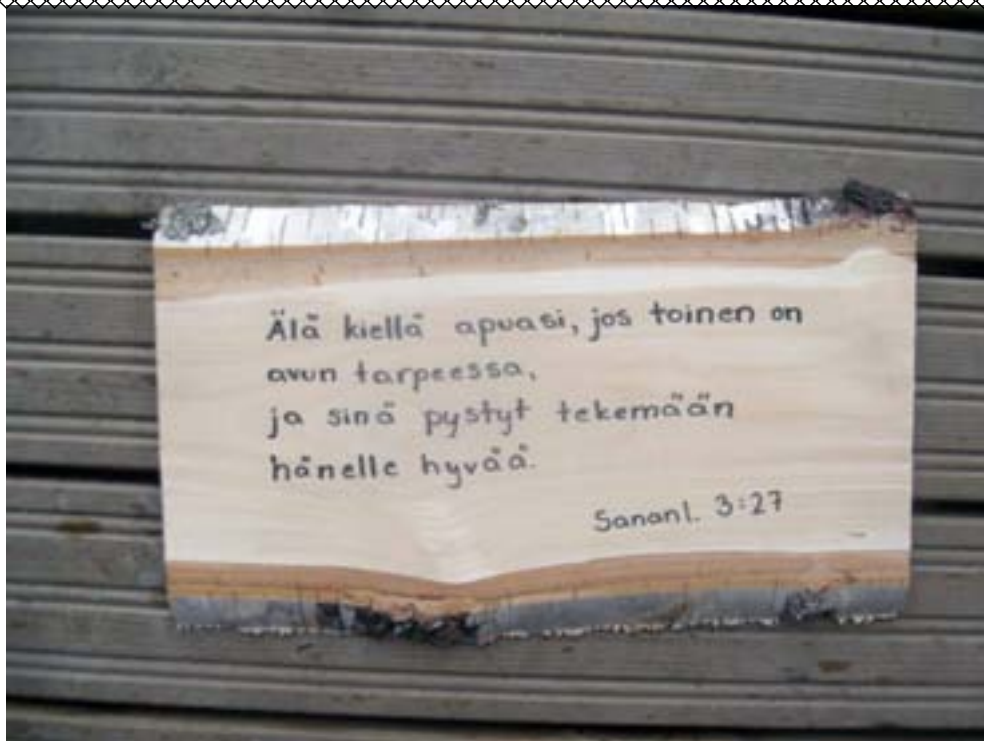 Älä kiellä apuasi, jos toinen on
avun tarpeessa,
ja sinä pystyt tekemään
hänelle hyvää.
Sananl. 3:27